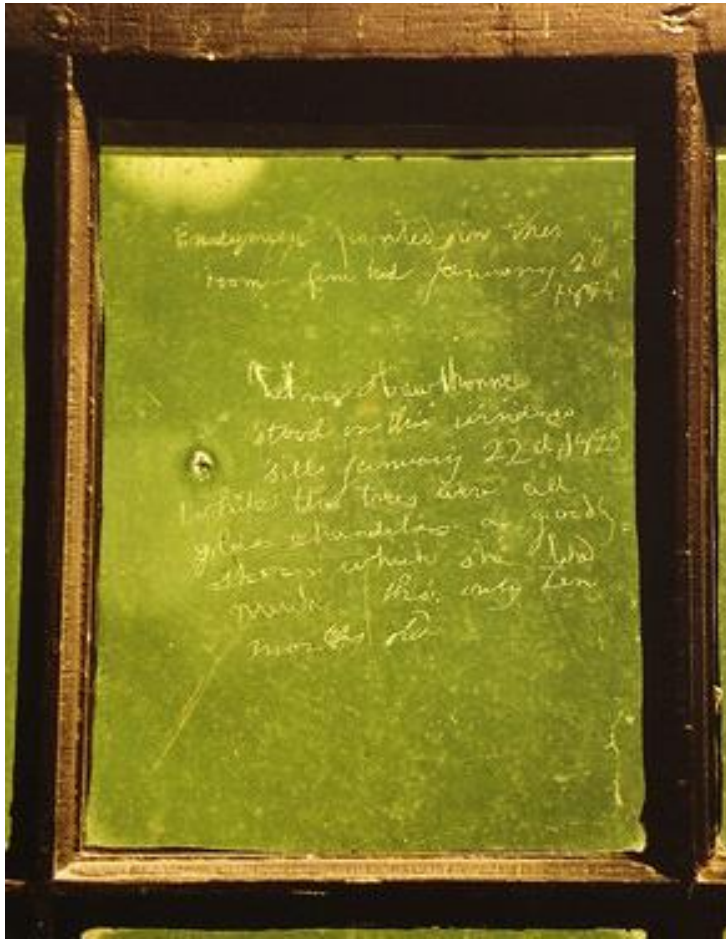 Endymion painted in this
room finished January 20th
1845
Una Hawthorne
stood on this window
sill January 22d, 1845
while the trees were all
glass chandeliers a goodly
show which she liked
much tho' only ten
months old